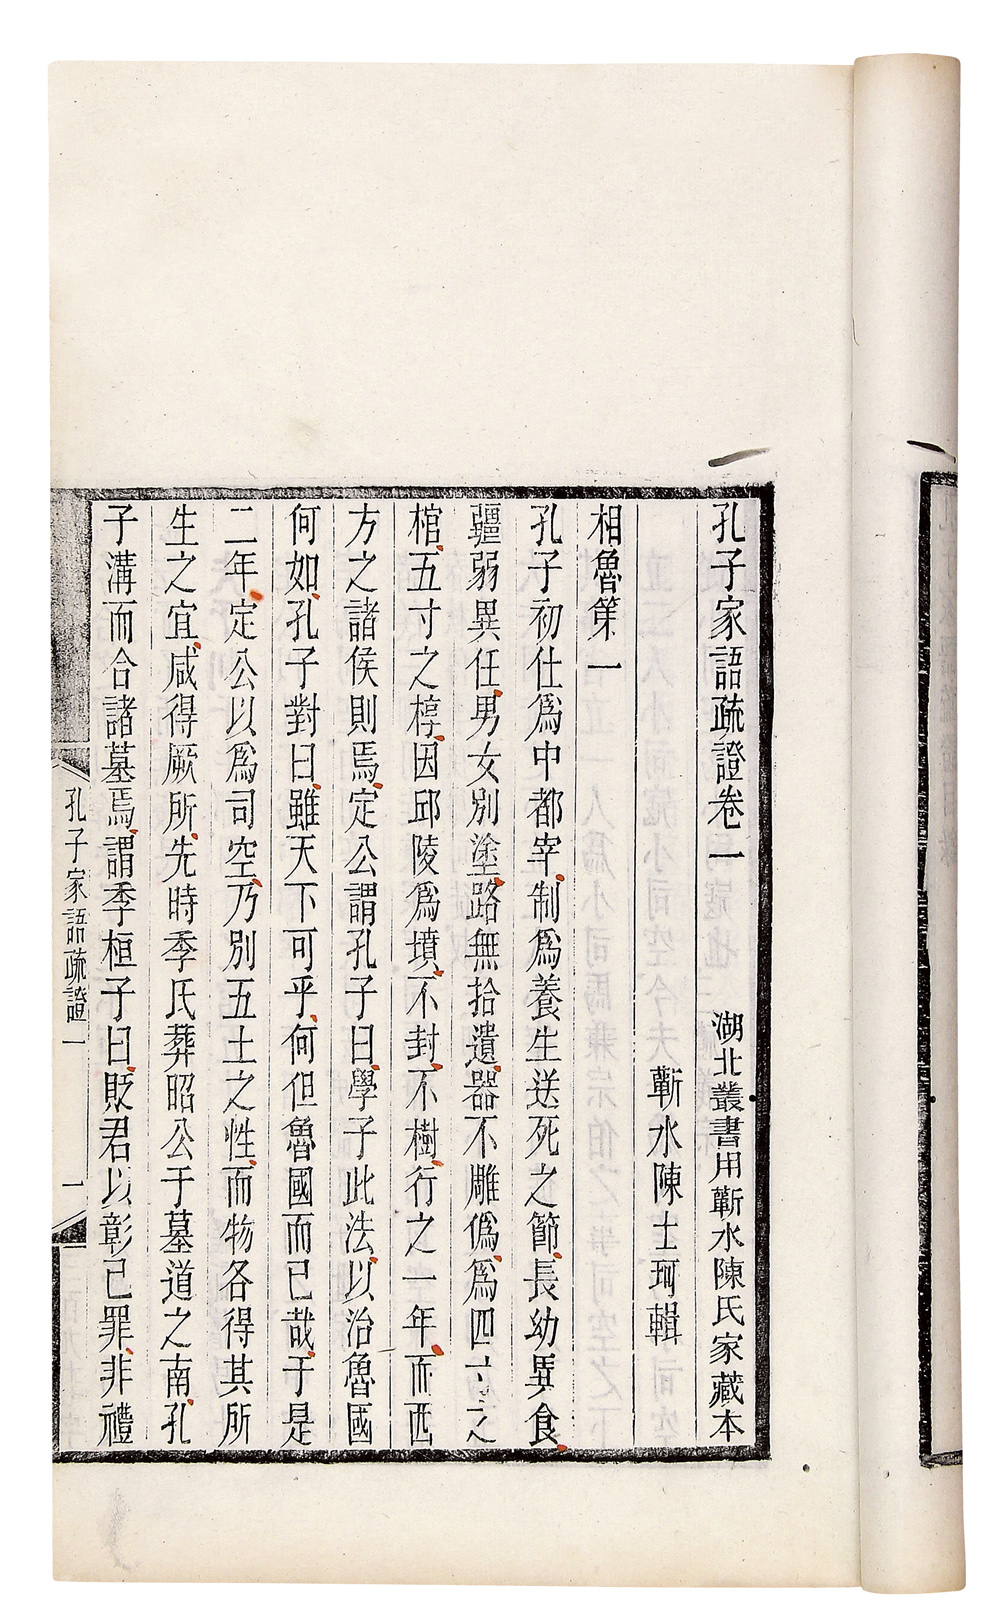 孔子家語疏證卷一　湖北叢書用蘄水陳氏家藏本
蘄水陳士珂輯
相魯第一
孔子初仕爲中都宰制爲養生送死之節長幼異食
彊弱異任男女別塗路無拾遺器不雕僞爲四寸之
棺五寸之椁因邱陵爲墳不封不樹行之一年而西
方之諸侯則焉定公謂孔子曰學子此法以治魯國
何如孔子對曰雖天下可乎何但魯國而已哉于是
二年定公以爲司空乃別五土之性而物各得其所
生之宜咸得厥所先時季氏葬昭公于墓道之南孔
子溝而合諸墓焉謂季桓子曰貶君以彰己罪非禮
孔子家語疏證一　一